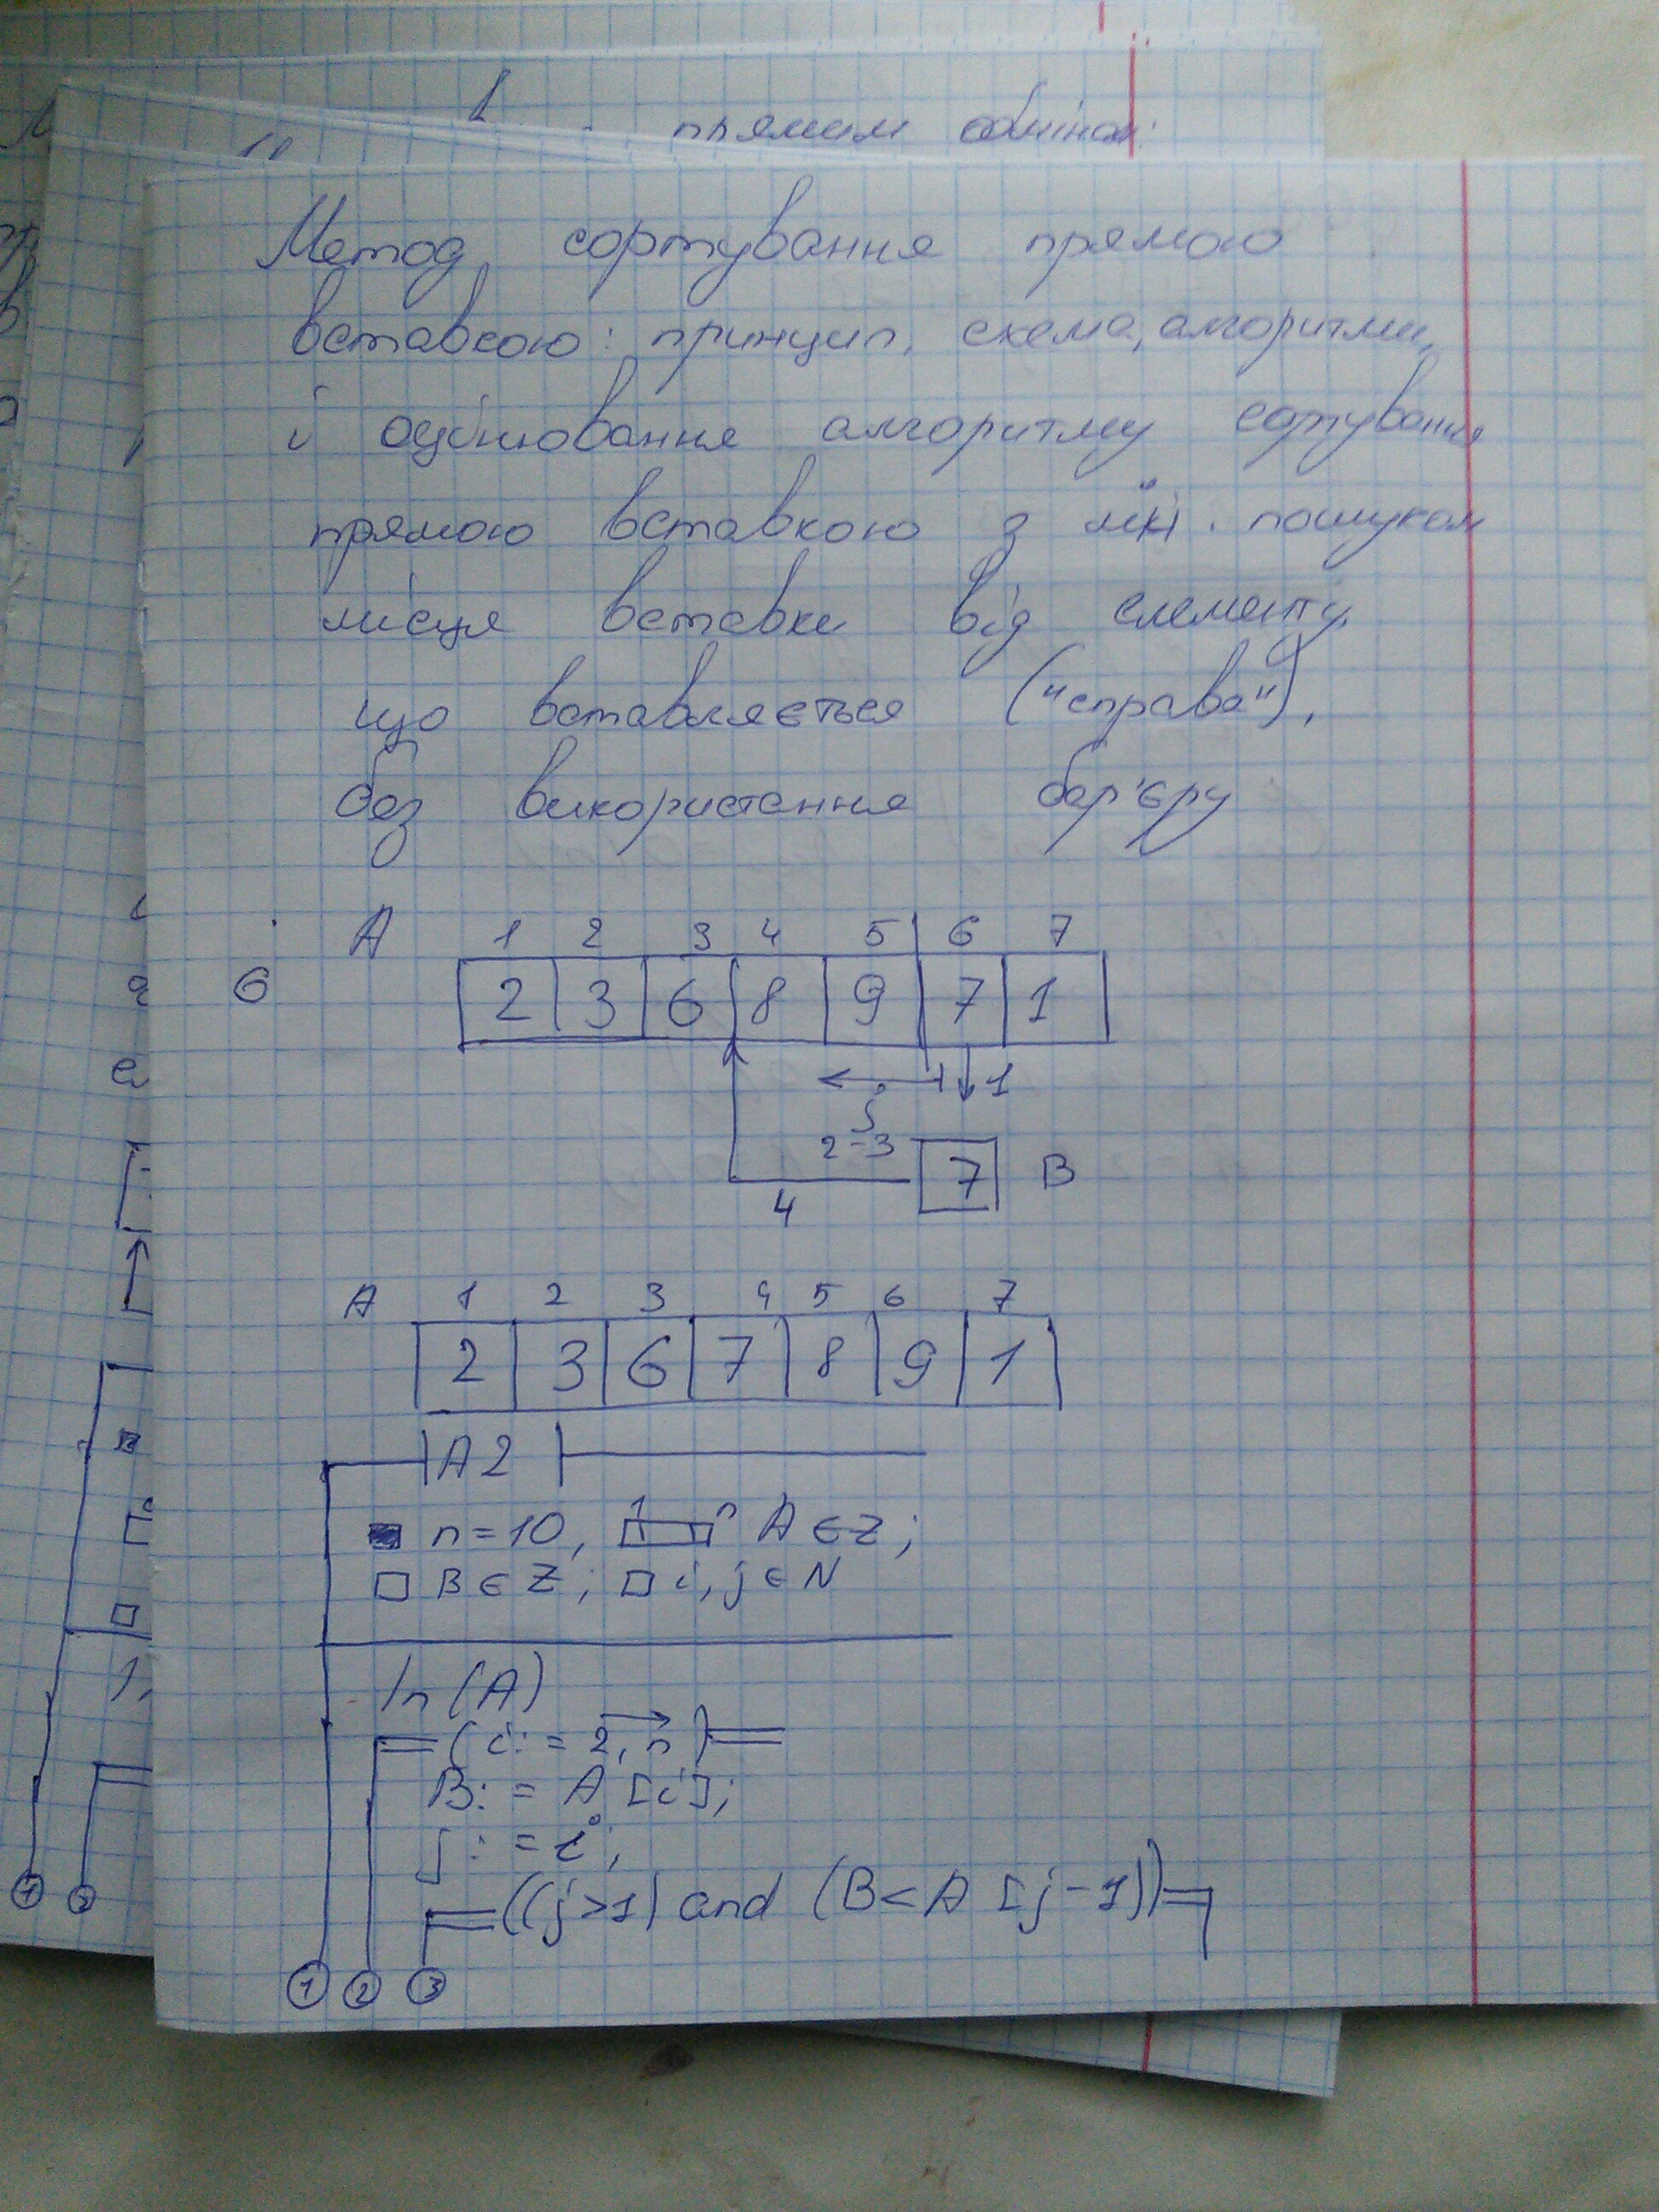 прямим обміном:
Метод сортування прямою
вставкою: принцип, схема, алгоритми,
і оцінювання алгоритму сортування
прямою вставкою з лін. пошуком
місця вставки від елементу,
що вставляється ("справа"),
без використання бар'єру
A 1 2 3 4 5 6 7
6 2 3 6 8 9 7 1
1
2-3
7 B
4
A 1 2 3 4 5 6 7
2 3 6 7 8 9 1
A2
n=10, 1 n A∈Z;
B∈Z; i,j∈N
In(A)
(i:=2,n)
B:=A[i];
j:=i;
((j>1) and (B<A[j-1]))
1 2 3
1 2